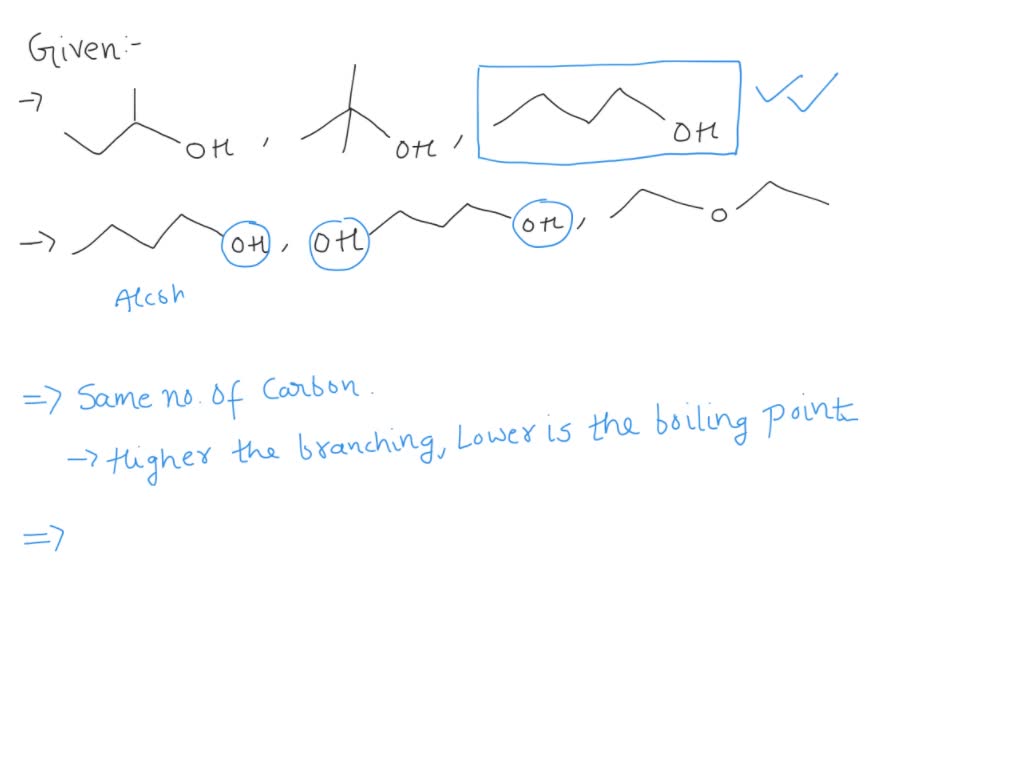 Given:-
→ OH , OH , OH
→ OH , OH OH , O
Alcoh
=> Same no. of Carbon.
→ Higher the branching, Lower is the boiling point
=>